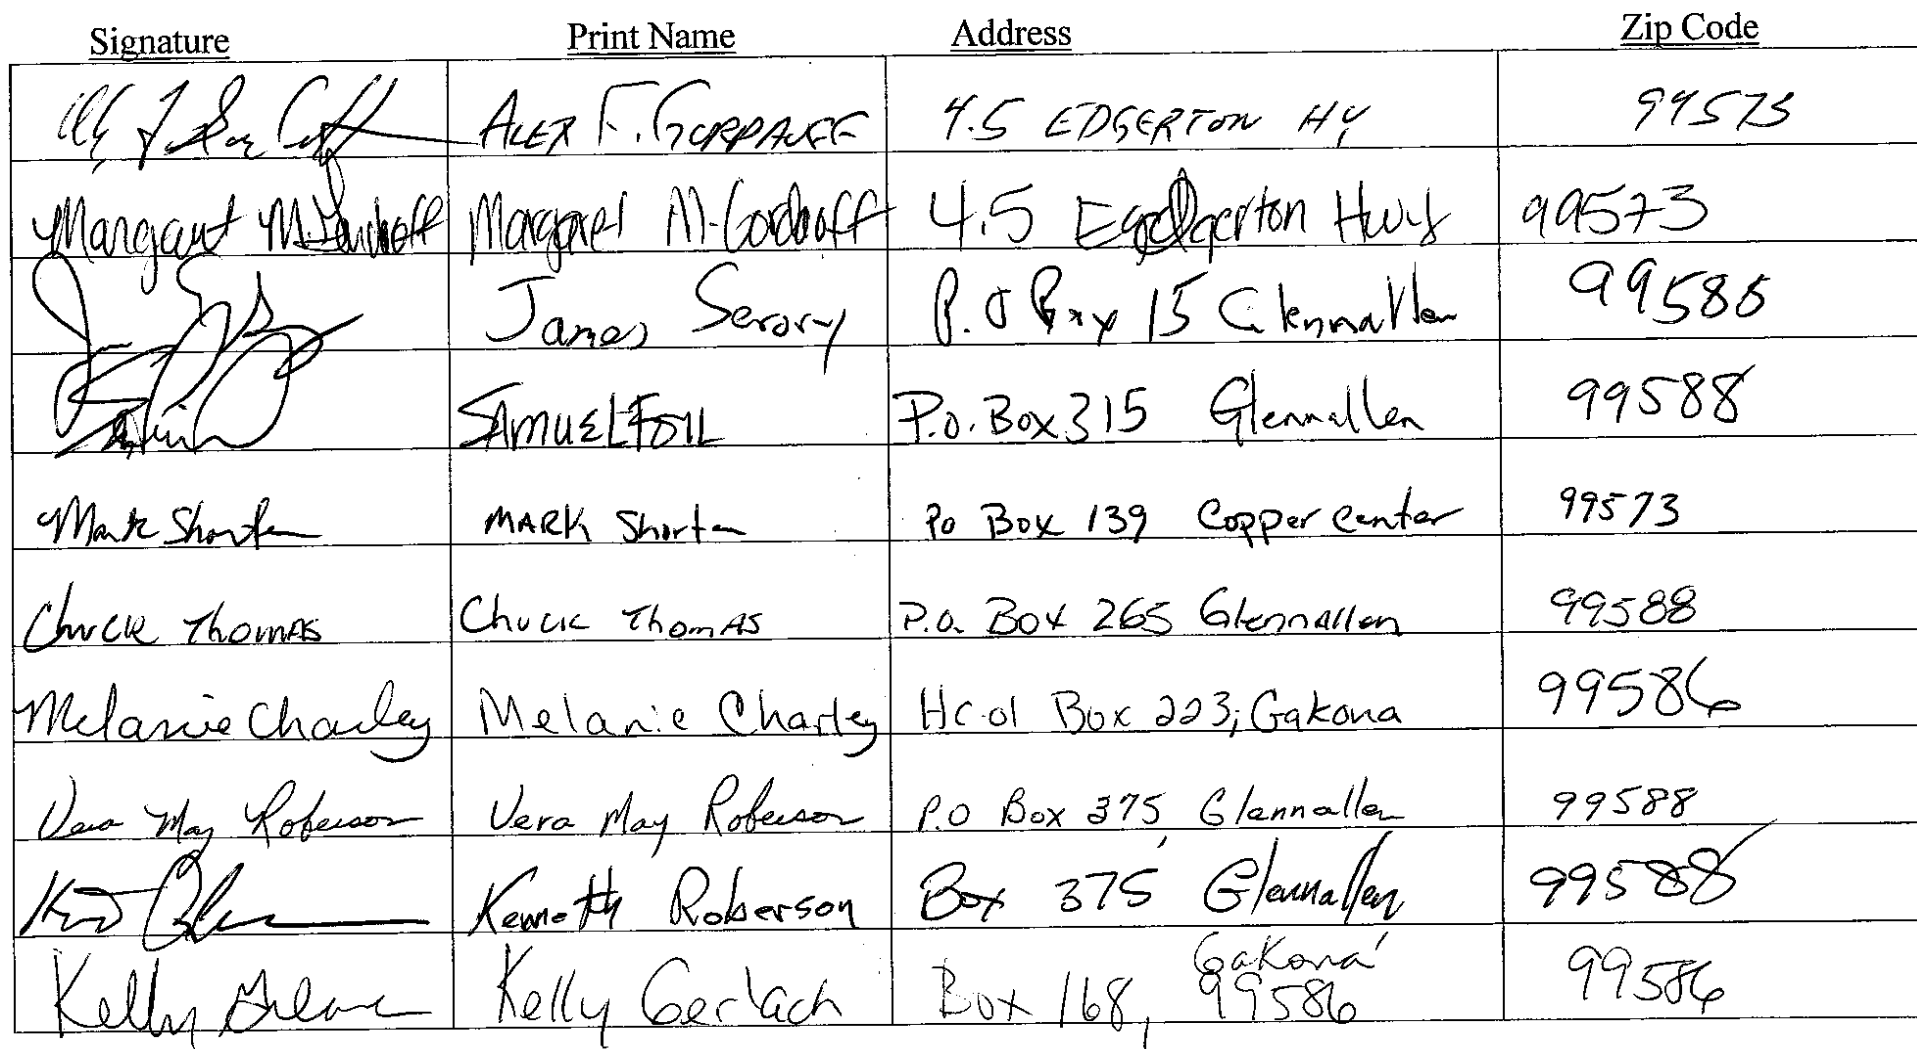 Signature Print Name Address Zip Code
ALEX F. 4.5 EDGERTON HY 99573
Margaret M. Gordaoff Margaret M. Gordaoff 4.5 Edgerton Hwy 99573
James P.O Box 15 Glennallen 99588
SAMUEL FOIL P.O. Box 315 Glennallen 99588
Mark Shorten MARK Shorten Po Box 139 Copper Center 99573
Chuck Thomas Chuck Thomas P.O. Box 265 Glennallen 99588
Melanie Charley Melanie Charley Hc.01 Box 223, Gakona 99586
Vera May Roberson Vera May Roberson P.O Box 375 Glennallen 99588
Kenneth Roberson Box 375 Glennallen 99588
Kelly Kelly Gerlach Box 168, Gakona 99586 99586